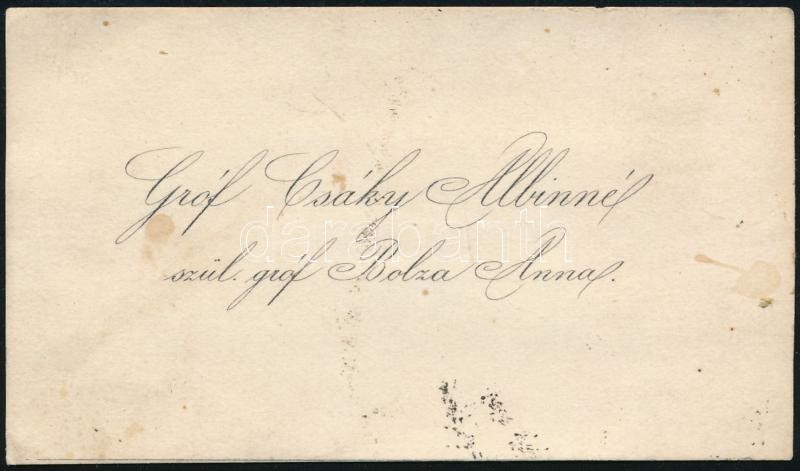 Gróf Csáky Albinné
szül. gróf Bolza Anna.
darabanth